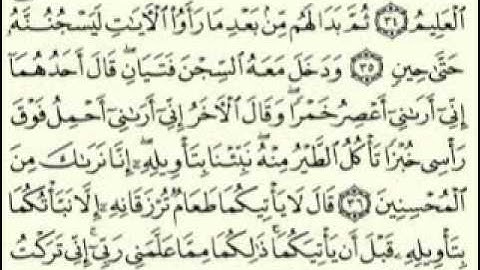 ٱلْعَلِيمُ ﴿٣٤﴾ ثُمَّ بَدَا لَهُم مِّنۢ بَعْدِ مَا رَأَوُا۟ ٱلْءَايَٰتِ لَيَسْجُنُنَّهُۥ
حَتَّىٰ حِينٍ ﴿٣٥﴾ وَدَخَلَ مَعَهُ ٱلسِّجْنَ فَتَيَانِ ۖ قَالَ أَحَدُهُمَآ
إِنِّىٓ أَرَىٰنِىٓ أَعْصِرُ خَمْرًا ۖ وَقَالَ ٱلْءَاخَرُ إِنِّىٓ أَرَىٰنِىٓ أَحْمِلُ فَوْقَ
رَأْسِى خُبْزًا تَأْكُلُ ٱلطَّيْرُ مِنْهُ ۖ نَبِّئْنَا بِتَأْوِيلِهِۦٓ ۖ إِنَّا نَرَىٰكَ مِنَ
ٱلْمُحْسِنِينَ ﴿٣٦﴾ قَالَ لَا يَأْتِيكُمَا طَعَامٌ تُرْزَقَانِهِۦٓ إِلَّا نَبَّأْتُكُمَا
بِتَأْوِيلِهِۦ قَبْلَ أَن يَأْتِيَكُمَا ۚ ذَٰلِكُمَا مِمَّا عَلَّمَنِى رَبِّىٓ ۚ إِنِّى تَرَكْتُ